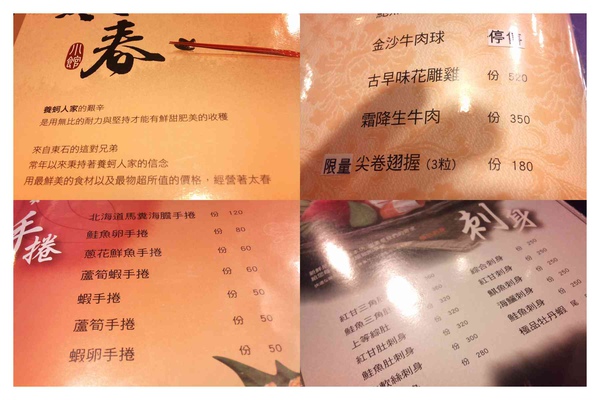 春
小館
養蚵人家的艱辛
是用無比的耐力與堅持才能有鮮甜肥美的收穫
來自東石的這對兄弟
常年以來秉持著養蚵人家的信念
用最鮮美的食材以及最物超所值的價格，經營著太春
金沙牛肉球 停售
古早味花雕雞 份 520
霜降生牛肉 份 350
限量 尖卷翅握 (3粒) 份 180
手捲
北海道馬糞海膽手捲 份 120
鮭魚卵手捲 份 80
蔥花鮮魚手捲 份 60
蘆筍蝦手捲 份 60
蝦手捲 份 50
蘆筍手捲 份 50
蝦卵手捲 份 50
刺身
紅甘三角 份 460
鮭魚三角 份 320
上等綜肚 份 320
紅甘肚刺身 份 320
鮭魚肚刺身 份 300
軟絲刺身 份 280
綜合刺身 份 250
紅甘刺身 份 250
旗魚刺身 份 250
海鱺刺身 份 250
鮭魚刺身 份 250
極品牡丹蝦 尾